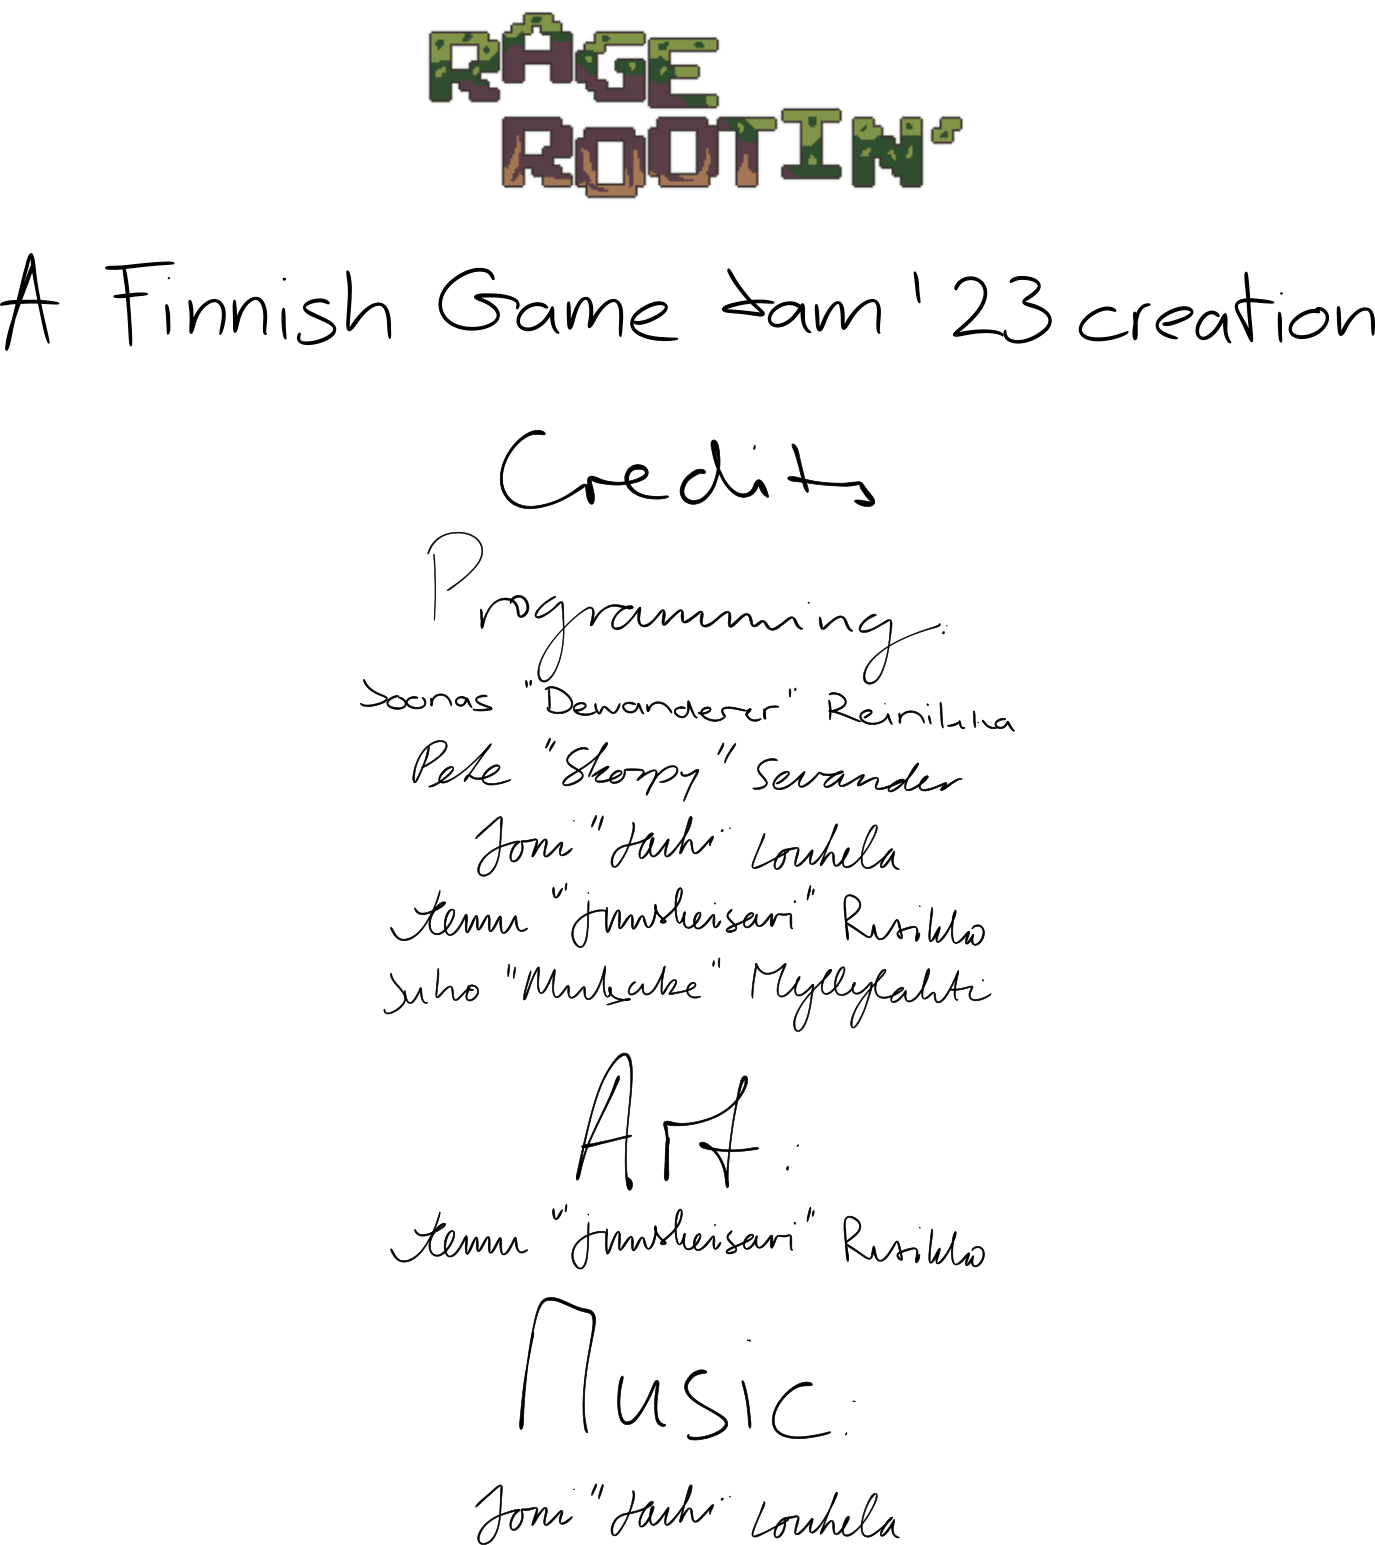 RAGE
ROOTIN'
A Finnish Game Jam '23 creation
Credits
Programming:
Joonas "Dewanderer" Reinikka
Pete "Skorpy" Sevander
Joni "Jachi" Louhela
Teemu "junskeisari" Risikko
Juho "Mukake" Myllylahti
Art:
Teemu "junskeisari" Risikko
Music:
Joni "Jachi" Louhela